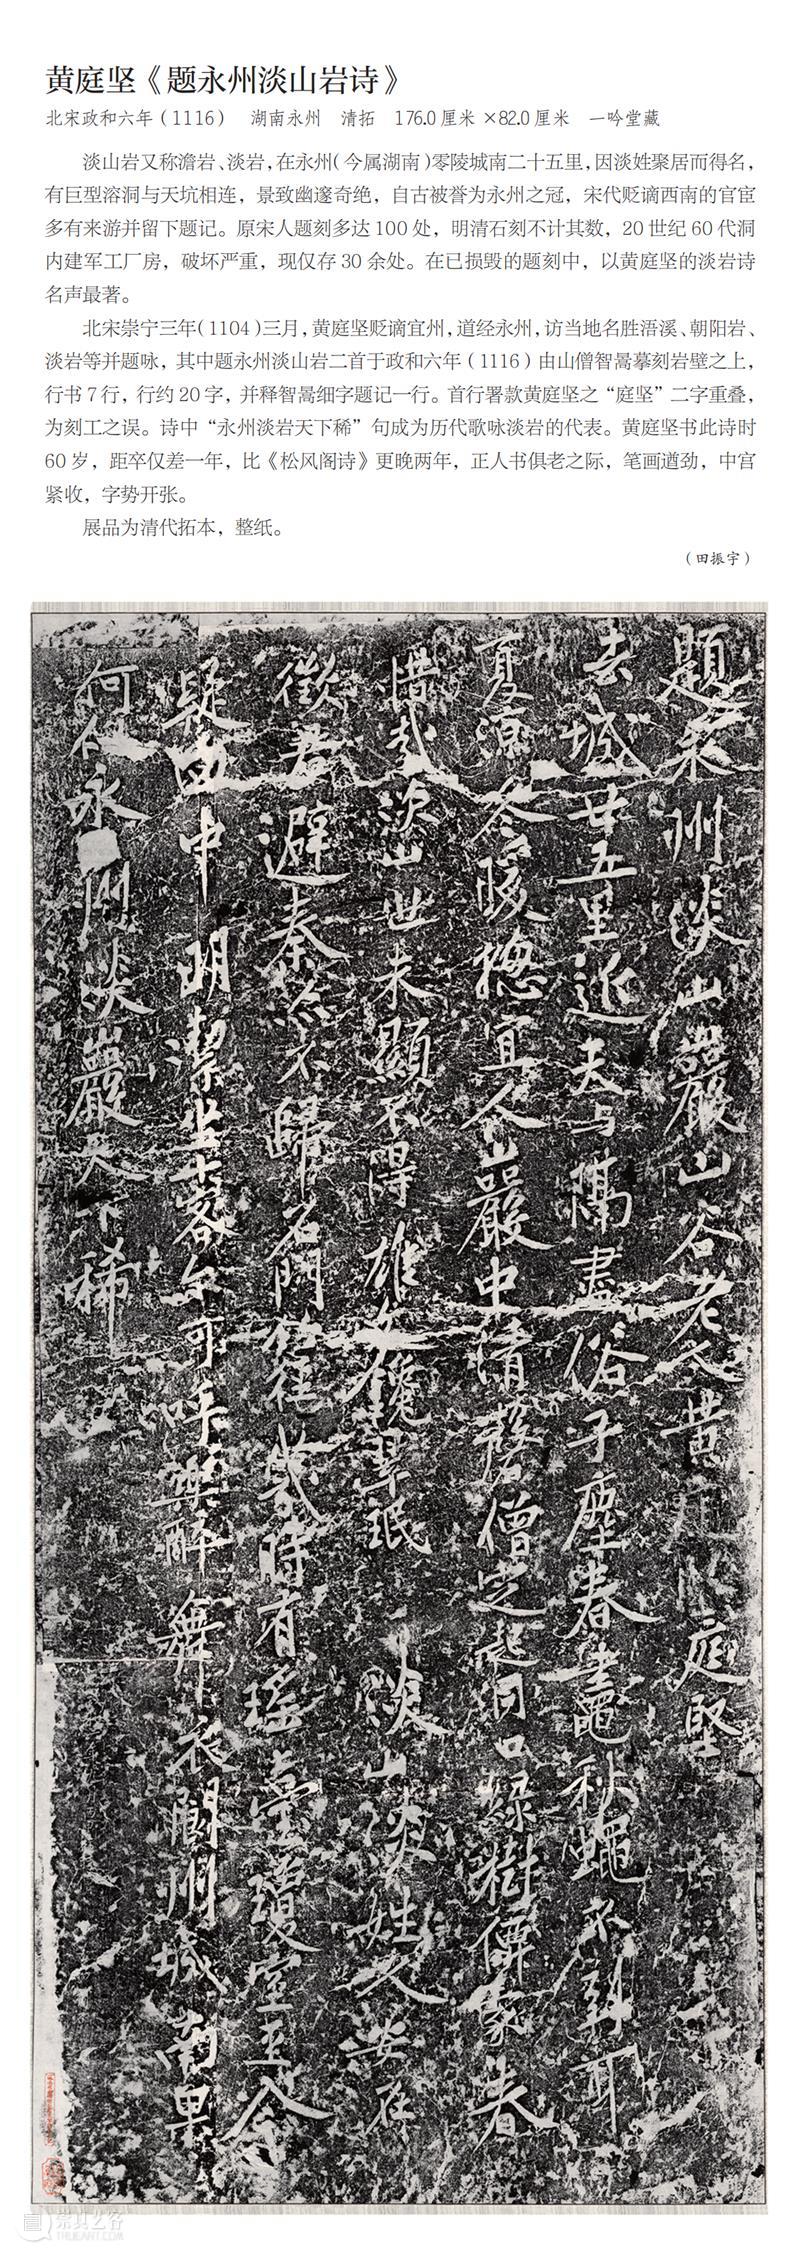 黄庭坚《题永州淡山岩诗》
北宋政和六年(1116) 湖南永州 清拓 176.0厘米×82.0厘米 一吟堂藏
淡山岩又称澹岩、淡岩,在永州(今属湖南)零陵城南二十五里,因淡姓聚居而得名,
有巨型溶洞与天坑相连,景致幽邃奇绝,自古被誉为永州之冠,宋代贬谪西南的官宦
多有来游并留下题记。原宋人题刻多达100处,明清石刻不计其数,20世纪60代洞
内建军工厂房,破坏严重,现仅存30余处。在已损毁的题刻中,以黄庭坚的淡岩诗
名声最著。
北宋崇宁三年(1104)三月,黄庭坚贬谪宜州,道经永州,访当地名胜浯溪、朝阳岩、
淡岩等并题咏,其中题永州淡山岩二首于政和六年(1116)由山僧智暠摹刻岩壁之上,
行书7行,行约20字,并释智暠细字题记一行。首行署款黄庭坚之“庭坚”二字重叠,
为刻工之误。诗中“永州淡岩天下稀”句成为历代歌咏淡岩的代表。黄庭坚书此诗时
60岁,距卒仅差一年,比《松风阁诗》更晚两年,正人书俱老之际,笔画遒劲,中宫
紧收,字势开张。
展品为清代拓本,整纸。
(田振宇)
題永州淡山巖山谷老人黄庭堅
去城廿五里近天与隔盡俗子塵春鼃秋蠅不到耳
夏涼冬暖揔宜人巖中清磬僧定起洞口綠樹僊家春
惜哉淡山世未顯不得雄文鑱翠珉 淡山淡姓人安在
徵君避秦亦不歸石門竹徑幾時有瑤臺瓊室至今
疑回中明潔坐十客亦可呼樂醉舞衣閬州城南果
何似永州淡巖天下稀
崇真艺客
TRUEART.COM